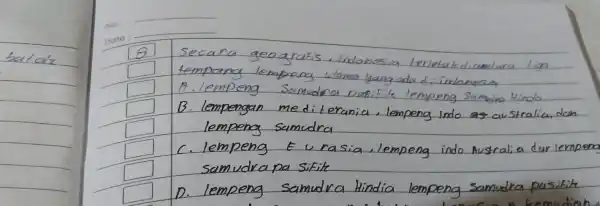 No:
Date:
8 Secara geografis, indonesia terletak diantara tiga
lempeng lempeng utama yang ada di indonesia
A. lempeng Samudra Pasifik lempeng Samudra Hindia
B. lempengan mediterania, lempeng Indo australia, dan
lempeng Samudra
C. lempeng Eurasia, lempeng indo Australia dan lempeng
Samudra pa sifik
D. lempeng samudra Hindia lempeng Samudra pasifik
kemudian